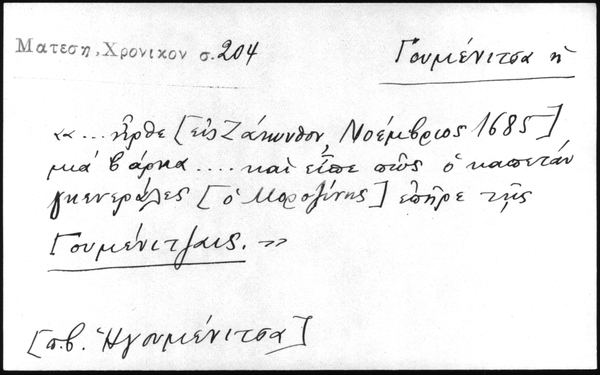 Ματεση, Χρονικον σ. 204
Γουμένιτσα ἡ
«... ἦρθε [εἰς Ζάκυνθον, Νοέμβριος 1685]
μιά βάρκα .... καὶ εἶπε πῶς ὁ καπετάν
γκενεράλες [ὁ Μοροζίνης] ἐπῆρε τῆς
Γουμένιτζαις. »
[π.β. Ἡγουμένιτσα]